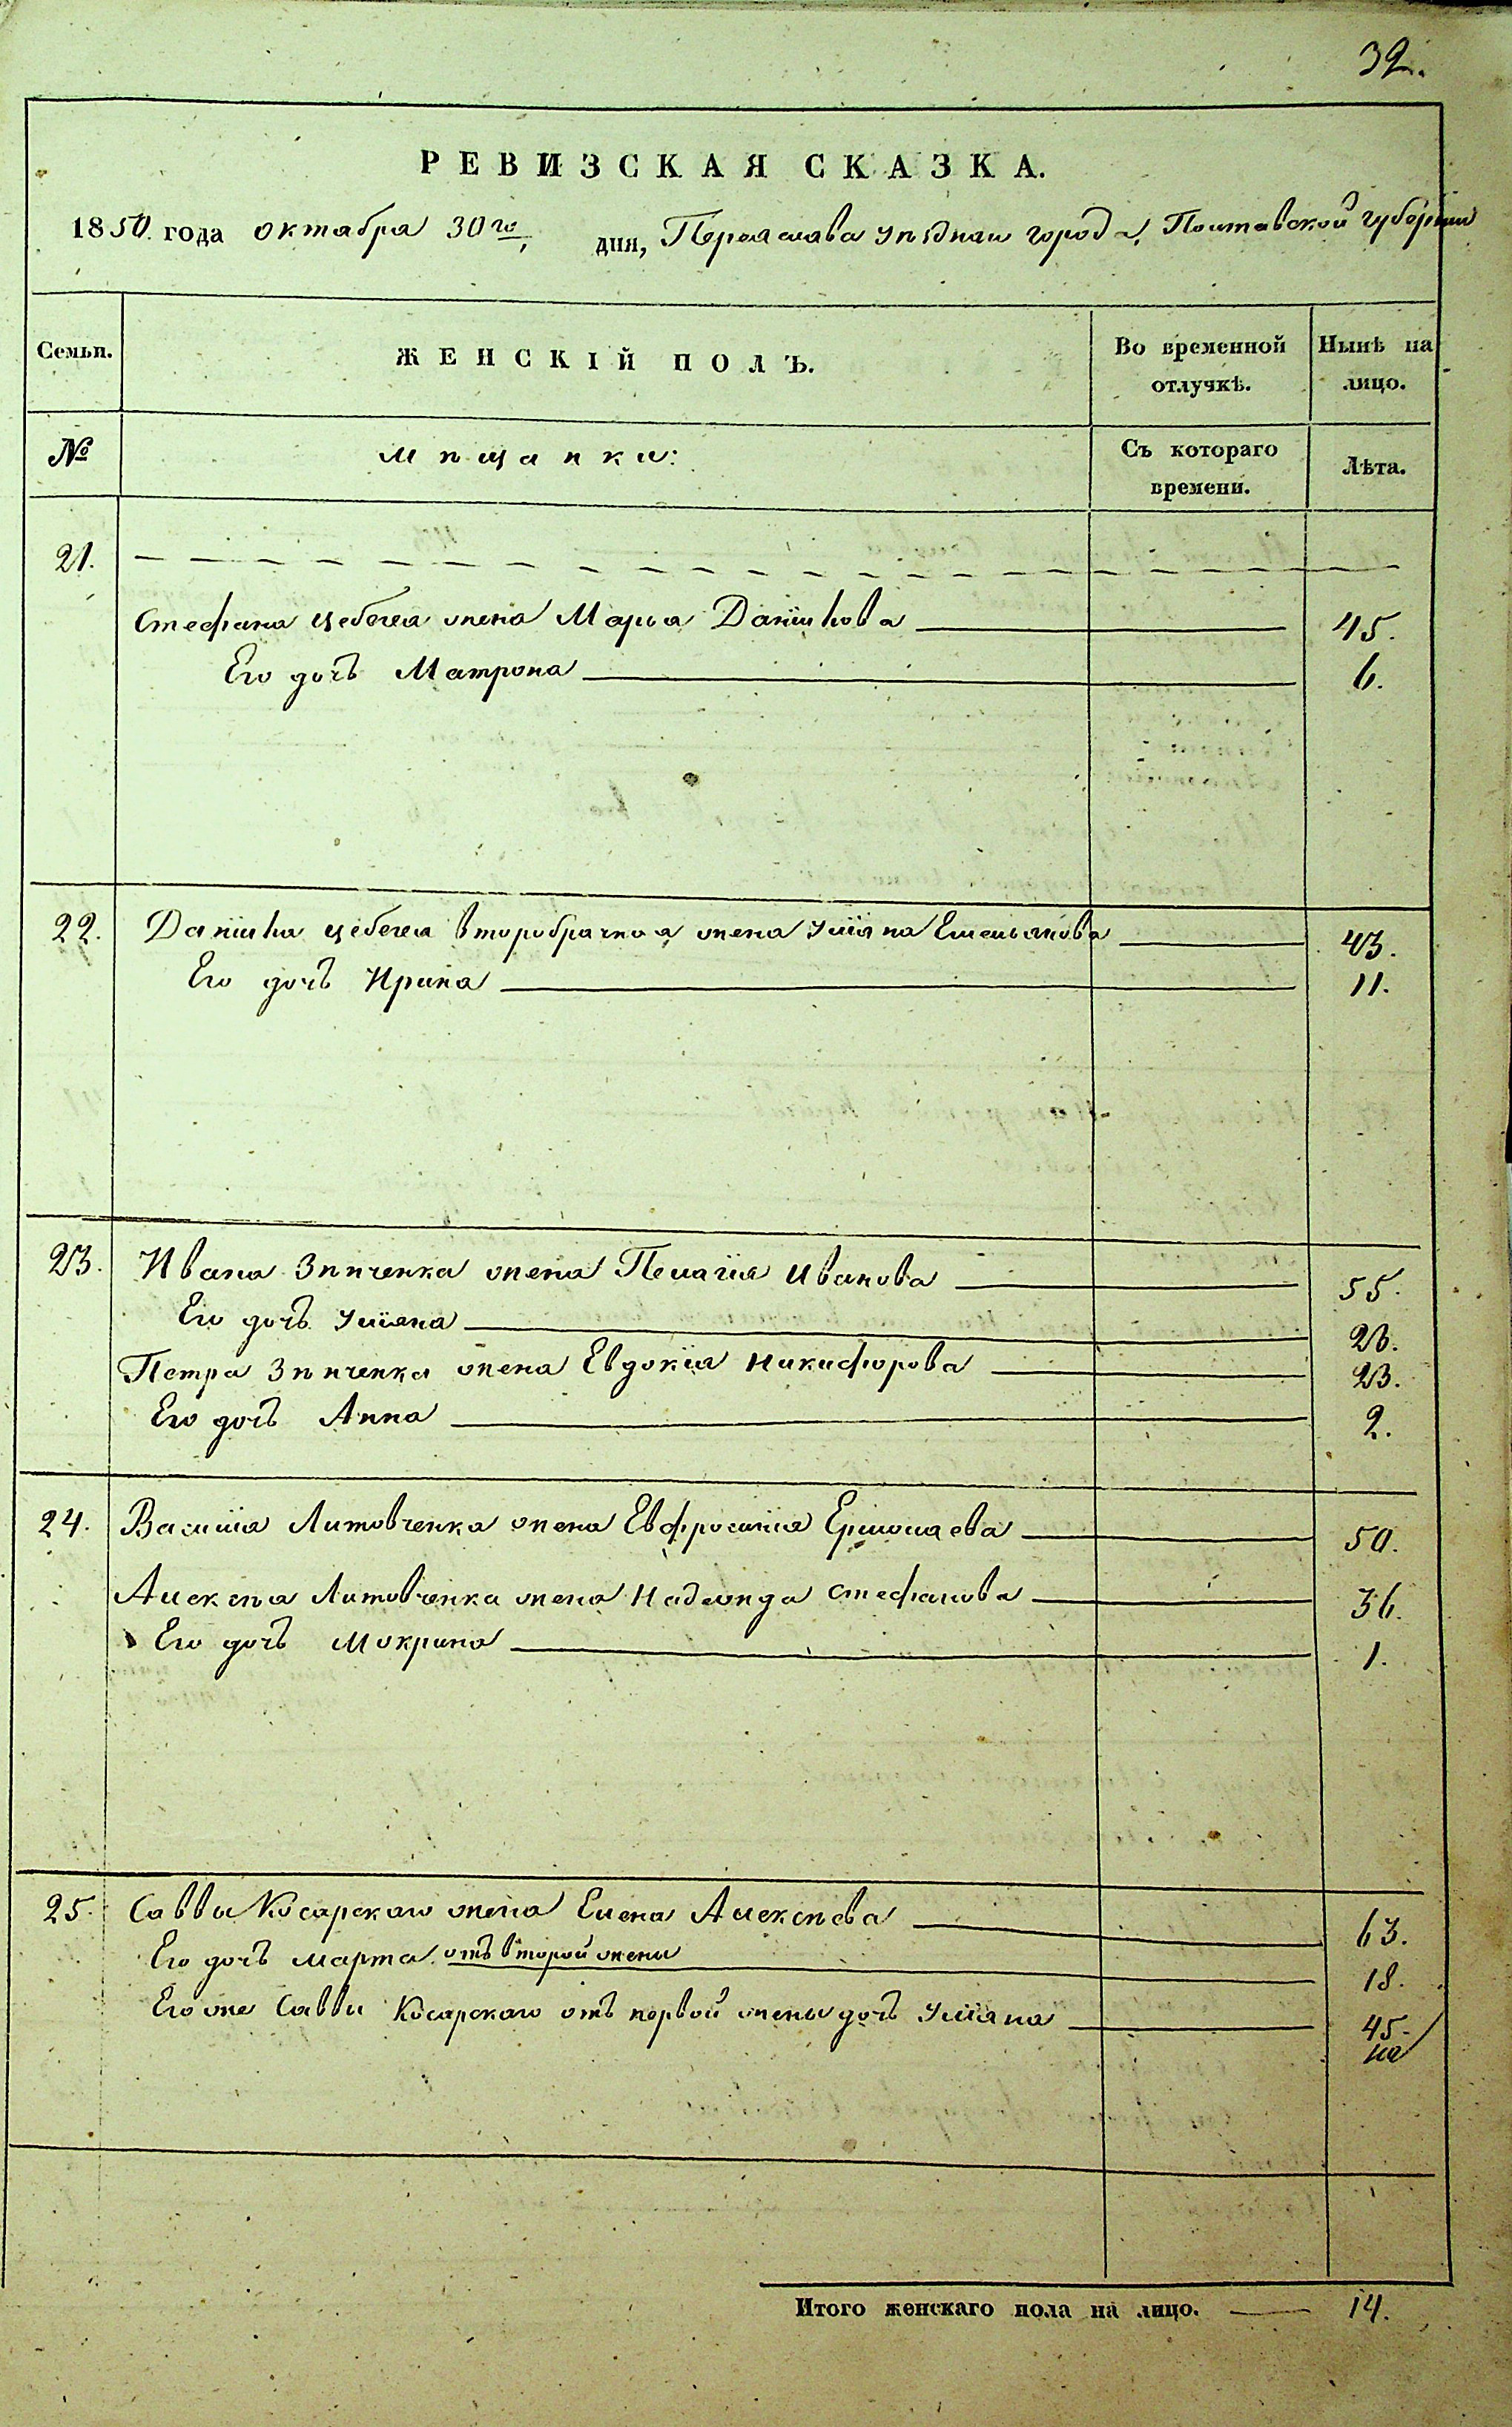 32.
РЕВИЗСКАЯ СКАЗКА.
1850. года октабра 30го, дня, Переяслава уѣзднаго города, Полтавской губерніи
Семьи. ЖЕНСКІЙ ПОЛЪ. Во временной отлучкѣ. Нынѣ на лицо.
№ Мѣщанки: Съ котораго времени. Лѣта.
21.
Стефана Цебегея жена Марья Данилова 45.
Его дочь Матрона 6.
22. Данила Цебегея второбрачная жена Уліяна Емельянова 43.
Его дочь Ирина 11.
23. Ивана Зѣнченка жена Пелагія Иванова 55.
Его дочь Уліяна 23.
Петра Зѣнченка жена Евдокія Никифорова 23.
Его дочь Анна 2.
24. Василія Литовченка жена Евфросинія Ермолаева 50.
Алексѣя Литовченка жена Надежда Стефанова 36.
Его дочь Мокрина 1.
25. Саввы Косарскаго жена Елена Алексѣева 63.
Его дочь Марта отъ второй жены 18.
Его же Саввы Косарскаго отъ первой жены дочь Уліяна 45.
Итого женскаго пола на лицо. 14.